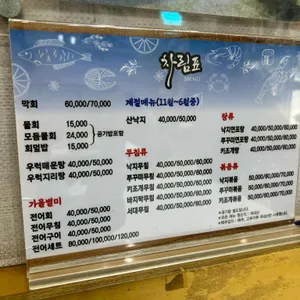 차림표
MENU
막회 60,000/70,000
물회 15,000
모듬물회 24,000
회덮밥 15,000
공기밥포함
우럭매운탕 40,000/50,000
우럭지리탕 40,000/50,000
가을별미
전어회 40,000/50,000
전어무침 40,000/50,000
전어구이 40,000/50,000
전어세트 80,000/100,000/120,000
계절메뉴(11월~6월중)
산낙지 40,000/50,000
무침류
낙지무침 40,000/50,000/60,000
쭈꾸미무침 40,000/50,000/60,000
키조개무침 40,000/50,000/60,000
바지락무침 40,000/50,000/60,000
서대무침 40,000/50,000/60,000
탕류
낙지연포탕 40,000/50,000/60,000
쭈꾸미연포탕 40,000/50,000/60,000
키조개탕 40,000/50,000/60,000
볶음류
낙지볶음 50,000/60,000/70,000
쭈꾸미볶음 50,000/60,000/70,000
키조개볶음 50,000/60,000/70,000